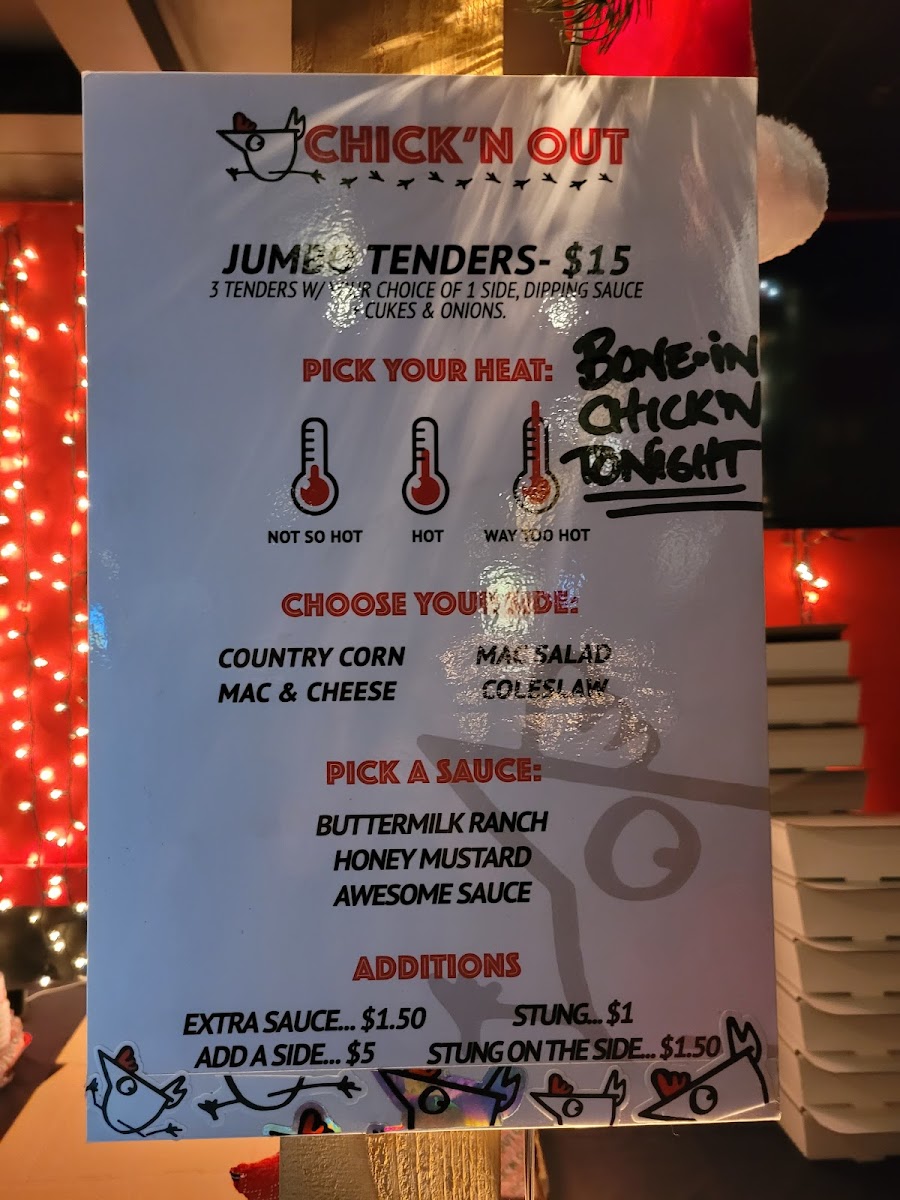 CHICK'N OUT
JUMBO TENDERS- $15
3 TENDERS W/ YOUR CHOICE OF 1 SIDE, DIPPING SAUCE
CUKES & ONIONS.
PICK YOUR HEAT:
BONE-IN
CHICK'N
TONIGHT
NOT SO HOT HOT WAY TOO HOT
CHOOSE YOUR SIDE:
COUNTRY CORN MAC SALAD
MAC & CHEESE COLESLAW
PICK A SAUCE:
BUTTERMILK RANCH
HONEY MUSTARD
AWESOME SAUCE
ADDITIONS
EXTRA SAUCE... $1.50 STUNG... $1
ADD A SIDE... $5 STUNG ON THE SIDE... $1.50